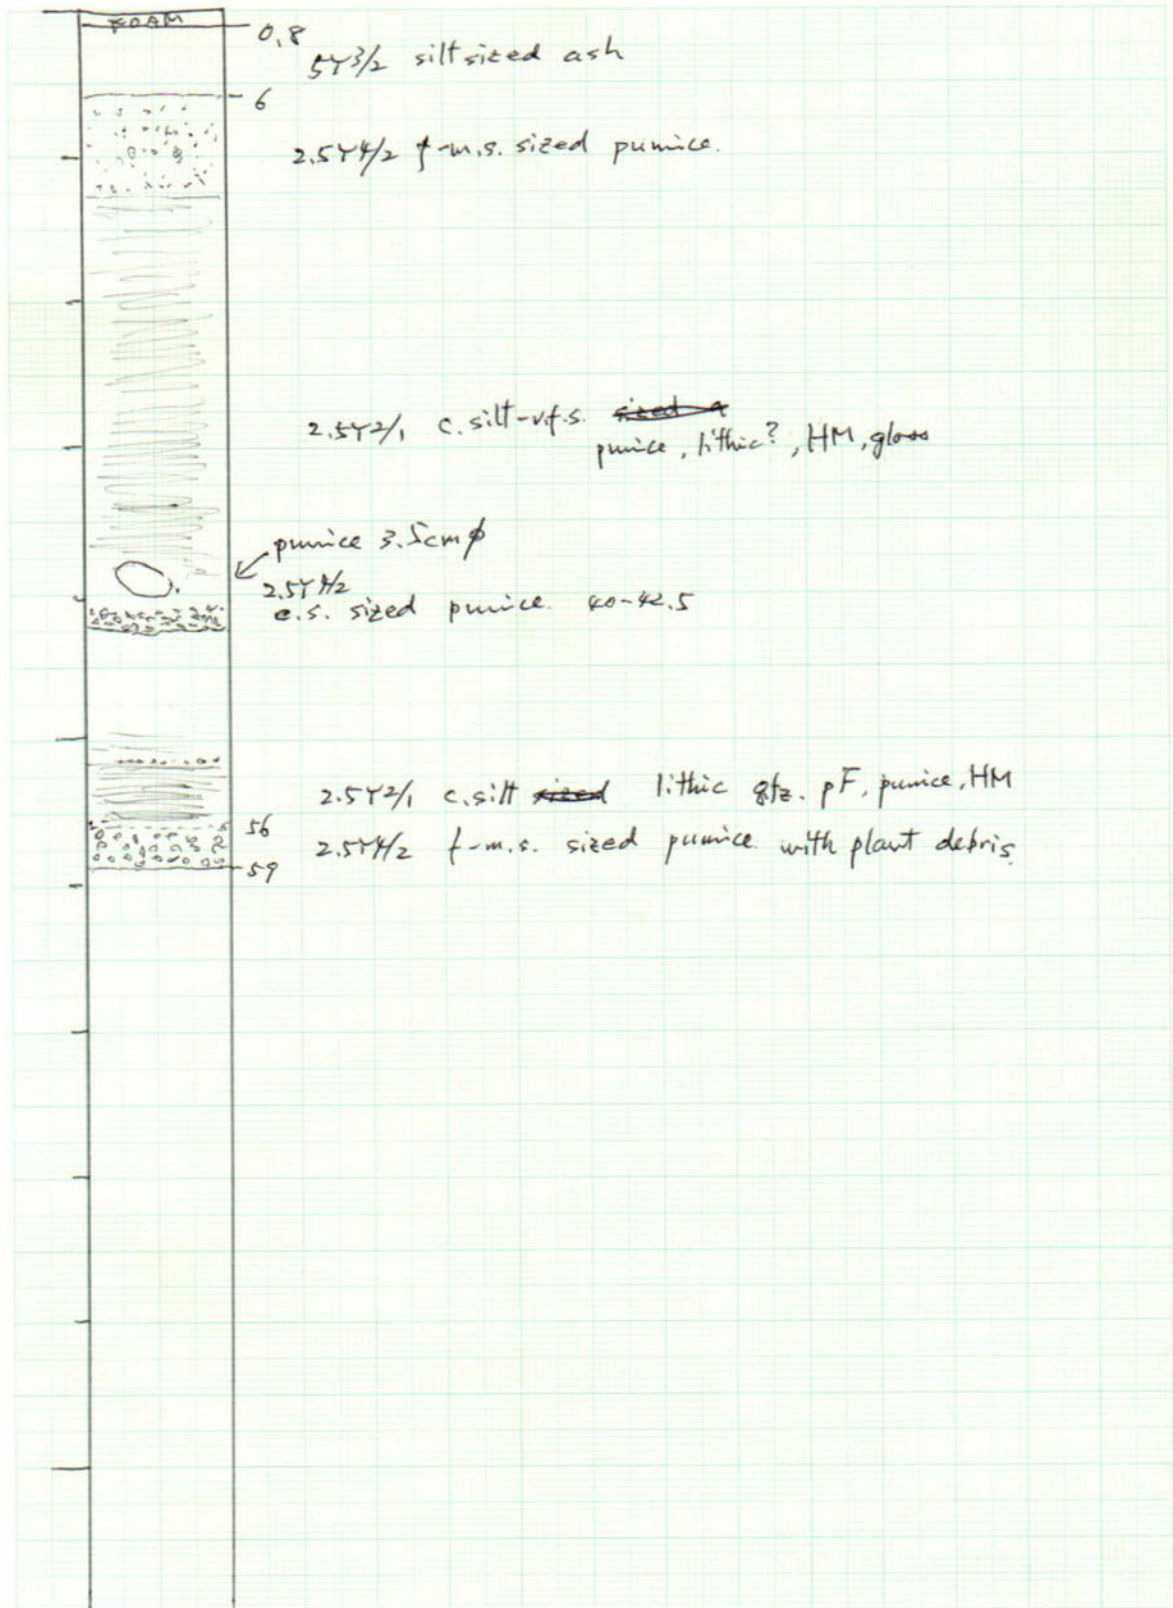 FOAM
0.8
5Y3/2 silt sized ash
6
2.5Y4/2 f-m.s. sized pumice.
2.5Y2/1 c.silt-v.f.s. sized a
pumice, lithic?, HM, glass
pumice 3.5cmφ
2.5Y4/2
c.s. sized pumice. 40-42.5
2.5Y2/1 c.silt sized lithic qtz. pF, pumice, HM
56
2.5Y4/2 f-m.s. sized pumice with plant debris.
59